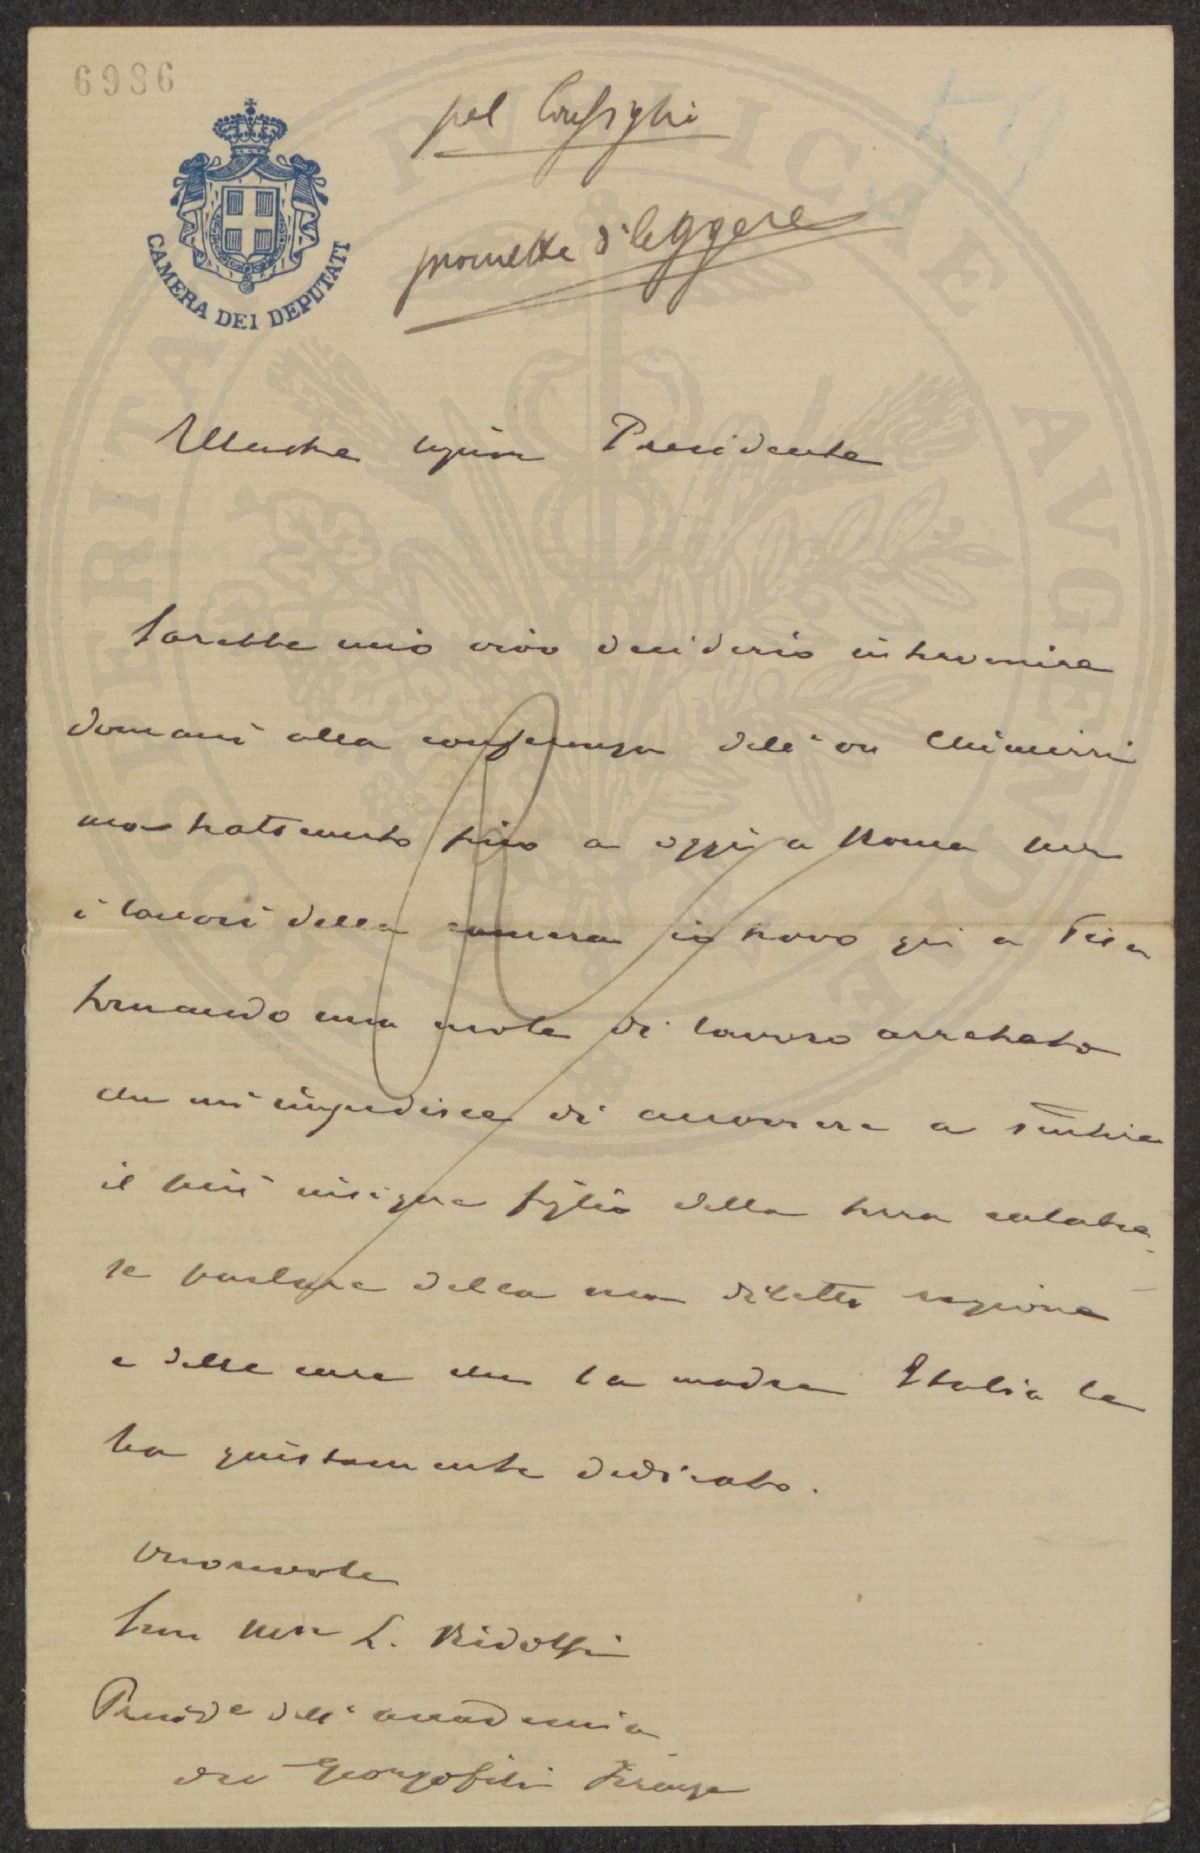 6986
pel Consigli
52
promette di leggere
CAMERA DEI DEPUTATI
PROSPERITATI PVBLICAE AVGENDAE
Illustre signor Presidente
Sarebbe mio vivo desiderio intervenire
domani alla conferenza dell'on Chimirri
ma trattenuto fino a oggi a Roma per
i lavori della camera io trovo qui a Pisa
tornando una mole di lavoro arretrato
che mi impedisce di accorrere a sentire
il più insigne figlio della terra calabre
se parlare della sua diletta regione
e delle cure che la madre Italia le
ha giustamente dedicato.
Onorevole
Sen March L. Ridolfi
Preside dell'accademia
dei Georgofili Firenze